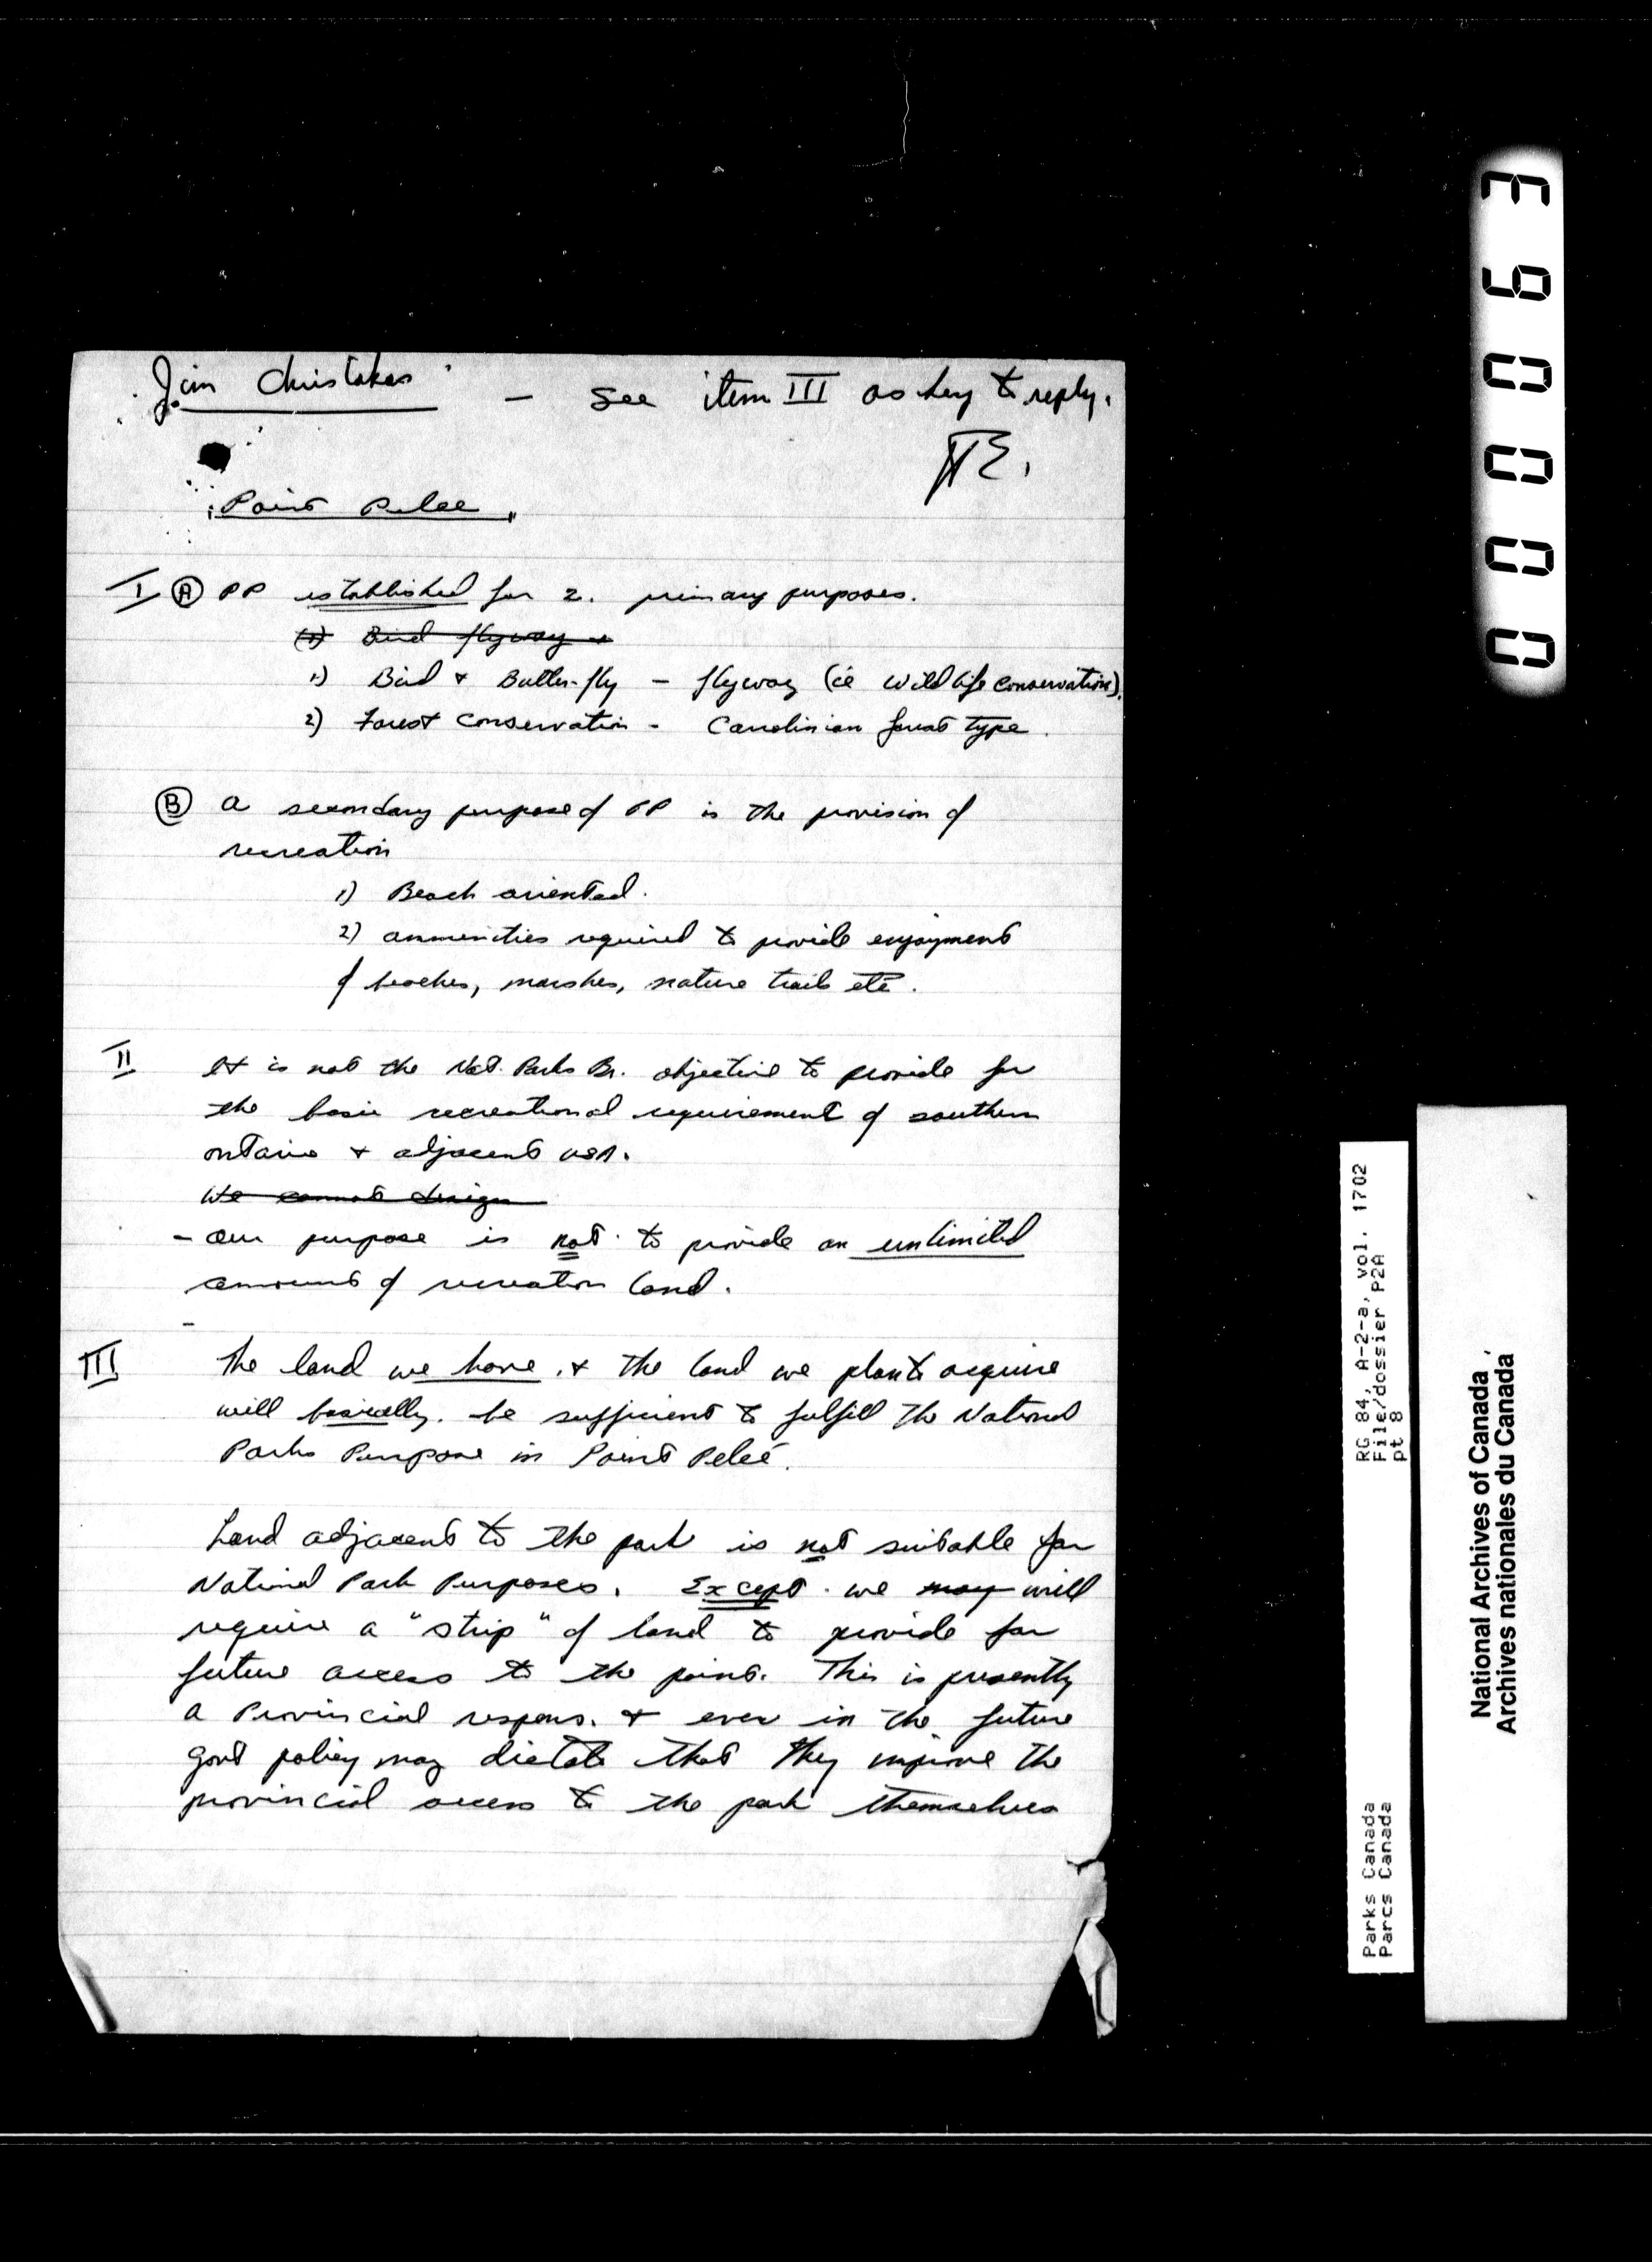 Jim Christakes - See item III as key to reply.
"Point Pelee"
I A PP established for 2. primary purposes.
(1) Bird flyway
1) Bird & Butter-fly - flyway (ie Wild life Conservation).
2) Forest Conservation - Carolinian forest type.
B a secondary purpose of PP is the provision of
recreation
1) Beach oriented.
2) ammenities required to provide enjoyment
of beaches, marshes, nature trails etc.
II It is not the Nat. Parks Br. objective to provide for
the basic recreational requirement of southern
Ontario & adjacent USA.
We cannot design
- Our purpose is not to provide an unlimited
amount of recreation land.
-
III The land we have & the land we plan to acquire
will basically be sufficient to fulfill the National
Parks Purpose in Point Pelee.
Land adjacent to the park is not suitable for
National Park Purposes. Except we may will
require a "strip" of land to provide for
future access to the point. This is presently
a Provincial respons. & even in the future
govt policy may dictate that they improve the
provincial access to the park themselves
000063
RG 84, A-2-a, vol. 1702
File/dossier P2A
pt 8
Parks Canada
Parcs Canada
National Archives of Canada
Archives nationales du Canada